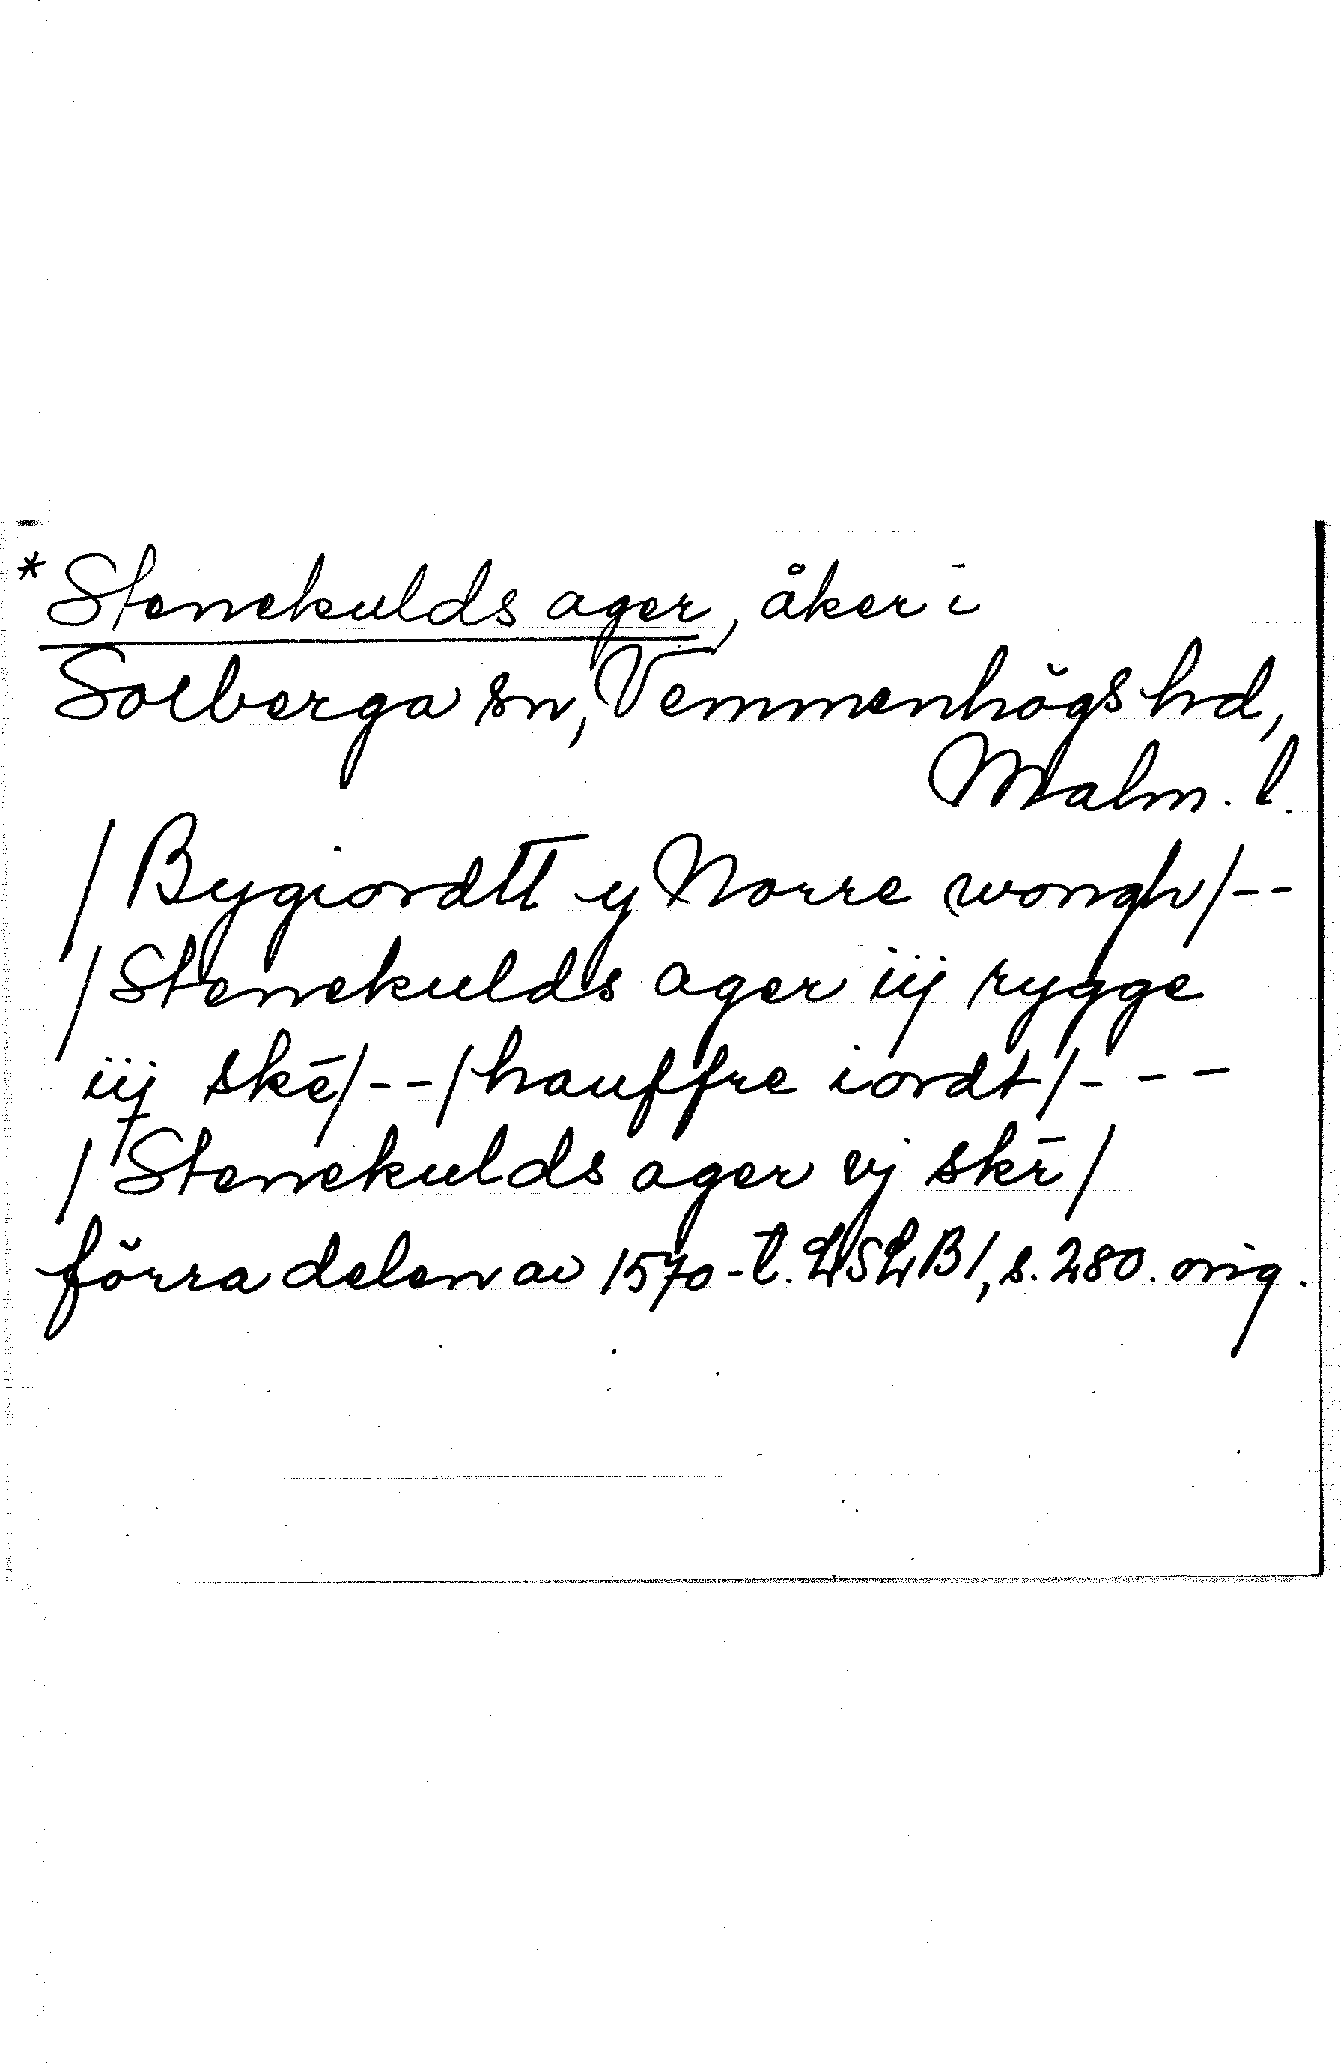 *Stenekulds ager, åker i
Solberga sn, Vemmenhögs hd,
Malm. l.
/Bygiordtt y Norre wongh/--
/Stenekulds ager iij rygge
iij skē/--/hauffre iordt/---
/Stenekulds ager vj skē/
förra delen av 1570-t. LSLB1, s. 280. orig.